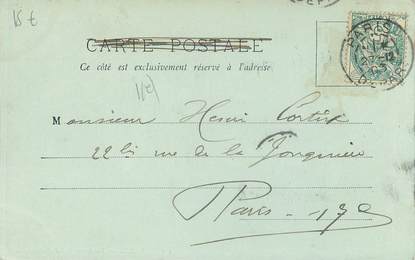 15 €
CARTE POSTALE
Ce côté est exclusivement réservé à l'adresse
Monsieur Henri
22 bis rue de la Jonquière
Paris - 17e
PARIS
DEPART